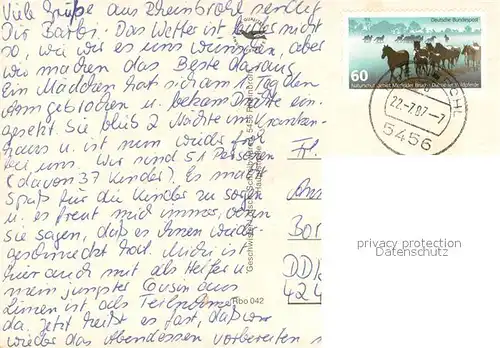 Viele Grüße aus Rheinbrohl sendet
Dir Barbi. Das Wetter ist leider nicht
so, wie wir es uns wünschen, aber
wir machen das Beste daraus.
Ein Mädchen hat sich am 1. Tag den
Arm gebrochen u. bekam Drähte ein-
gesetzt. Sie blieb 2 Nächte im Kranken-
haus u. ist nun wieder froh
bei uns. Wir sind 51 Personen
(davon 37 Kinder). Es macht
Spaß für die Kinder zu sorgen
u. es freut mich immer, wenn
Sie sagen, daß es Ihnen wieder
geschmeckt hat. Michi ist
hier auch mit als Helfer u.
mein jüngster Cousin aus
Linnen ist als Teilnehmer
da. Jetzt heißt es fast, daß wir
wieder das Abendessen vorbereiten
Deutsche Bundespost
60
22.-7.87-7
5456
Fr.
DD
424
Rbo 042
privacy protection
Datenschutz